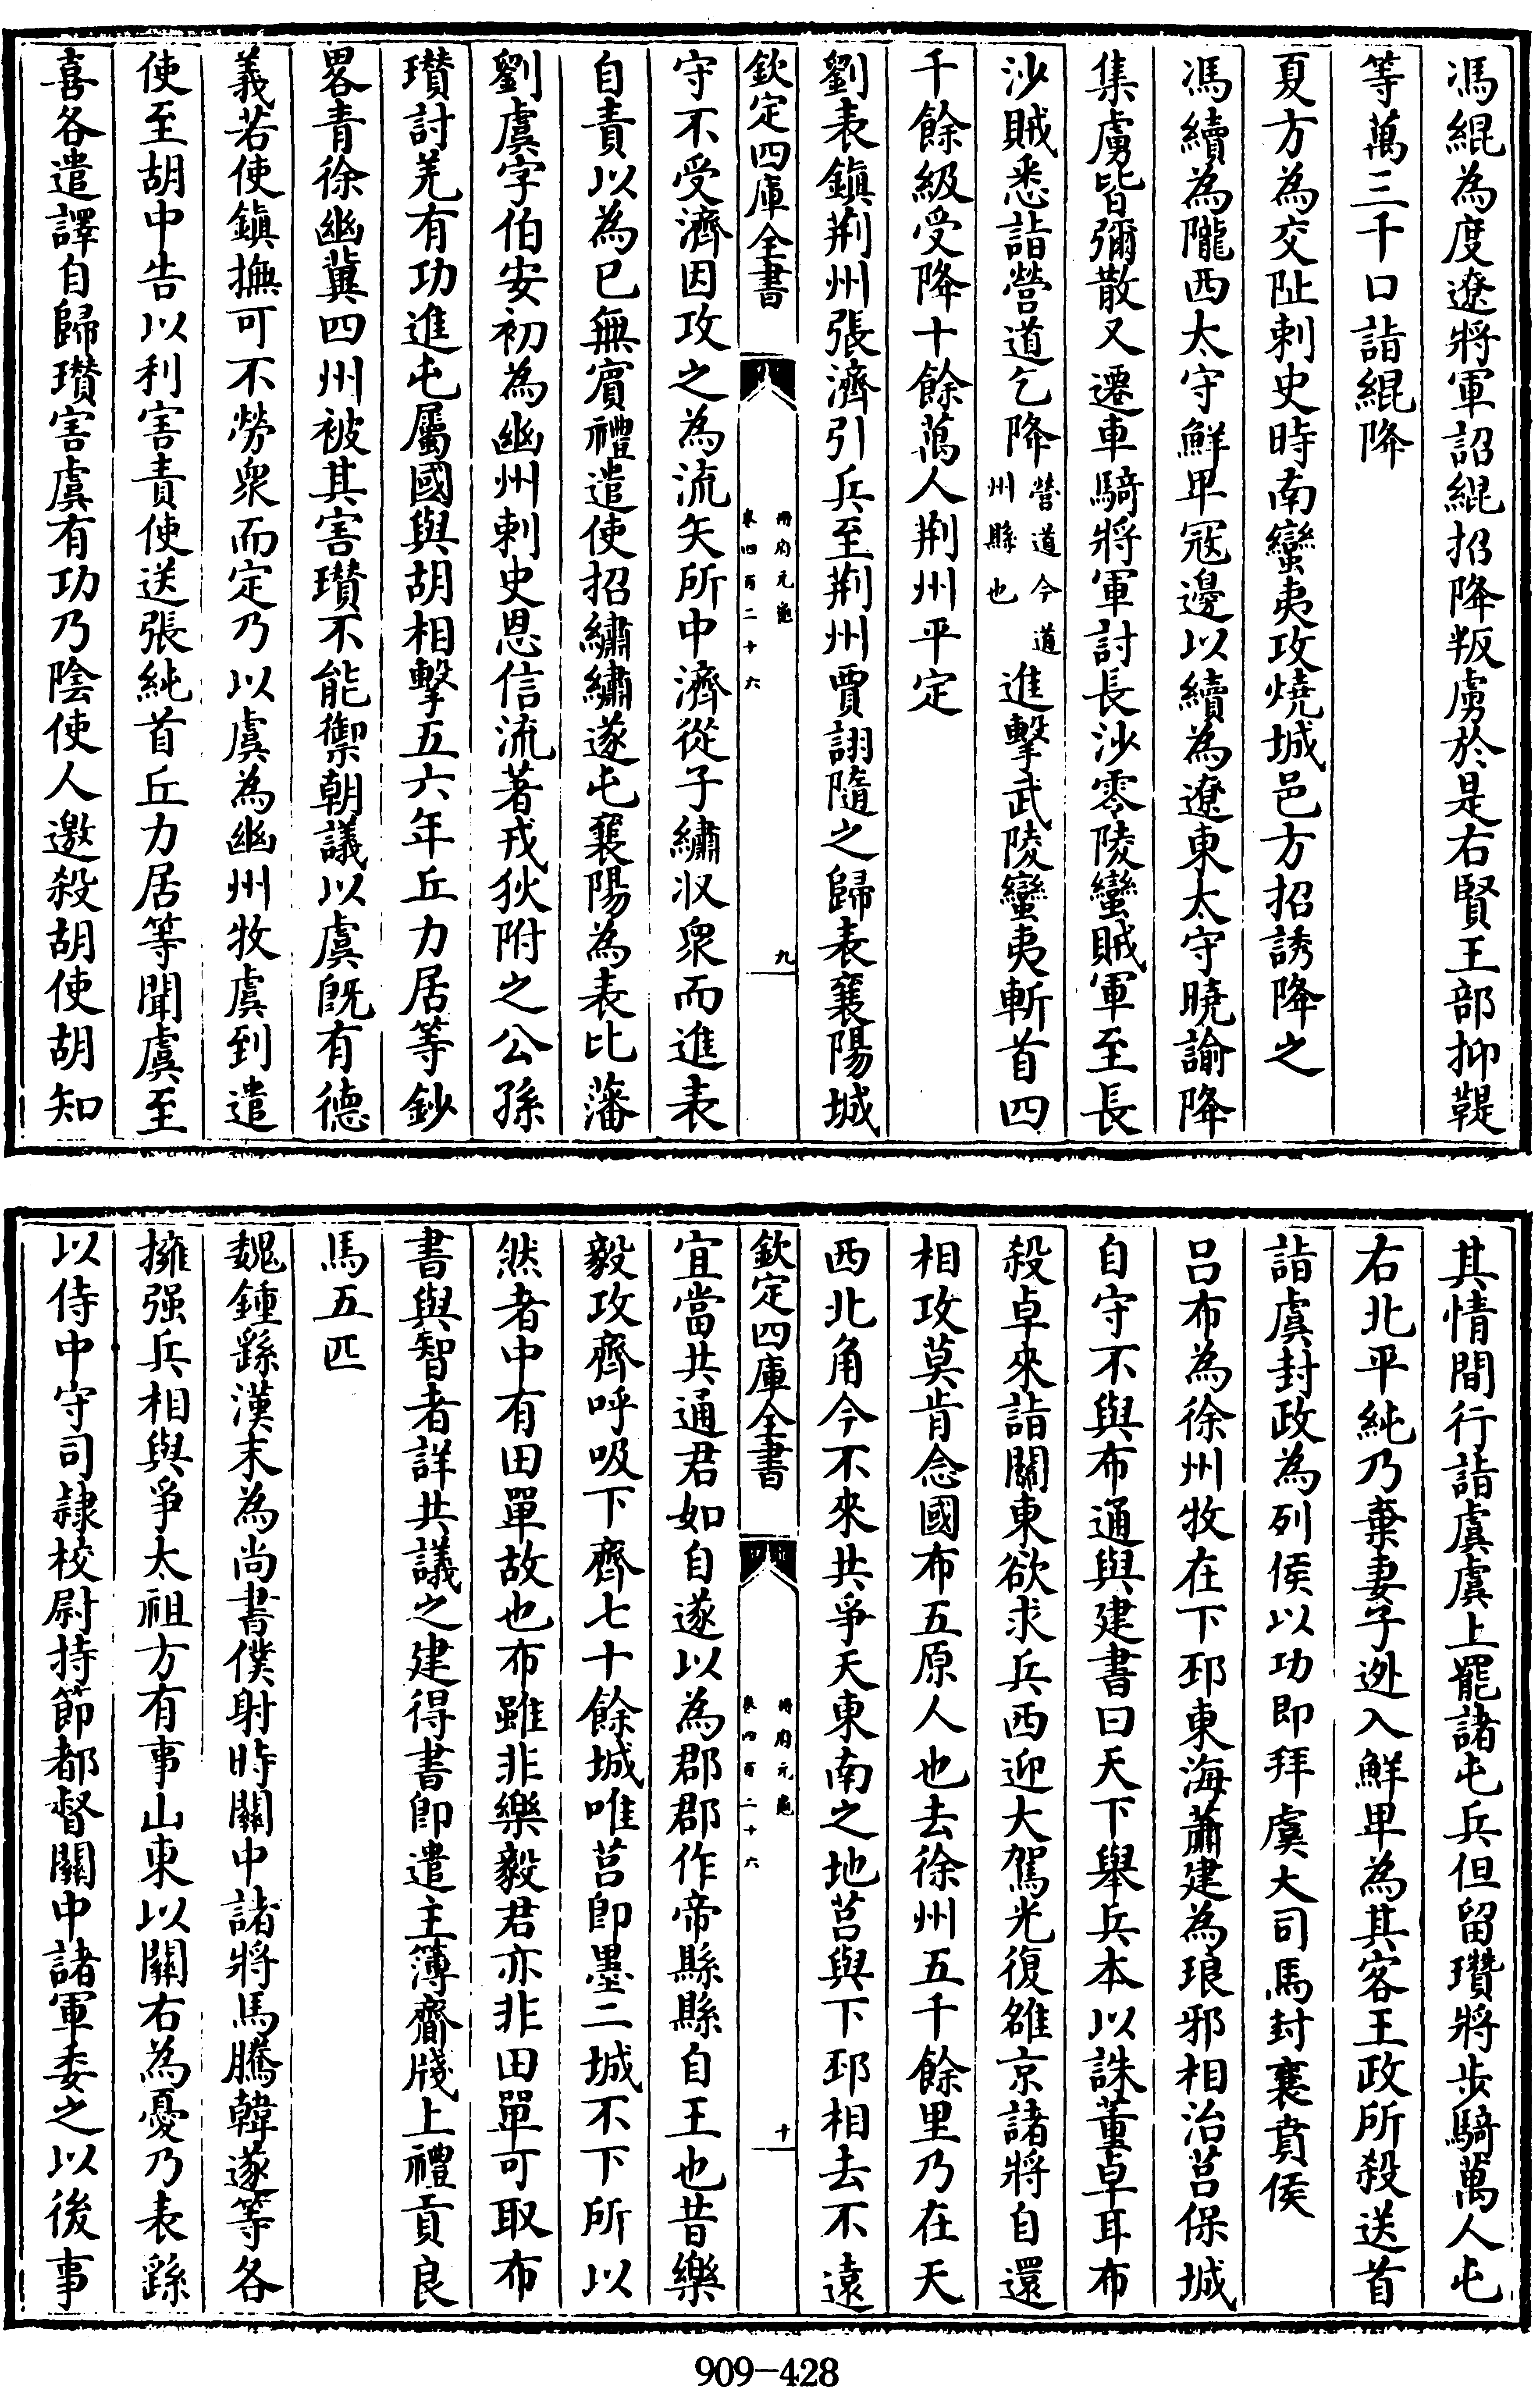 馮緄為度遼將軍詔緄招降叛虜於是右賢王部抑鞮
等萬三千口詣緄降
夏方為交阯刺史時南蠻夷攻燒城邑方招誘降之
馮續為隴西太守鮮卑寇邊以續為遼東太守曉諭降
集虜皆彌散又遷車騎將軍討長沙零陵蠻賊軍至長
沙賊悉詣營道乞降營道今道州縣也進擊武陵蠻夷斬首四
千餘級受降十餘萬人荆州平定
劉表鎮荆州張濟引兵至荆州賈詡隨之歸表襄陽城
欽定四庫全書 冊府元龜 卷四百二十六 九
守不受濟因攻之為流矢所中濟從子繡收衆而進表
自責以為已無賓禮遣使招繡繡遂屯襄陽為表比藩
劉虞字伯安初為幽州刺史恩信流著戎狄附之公孫
瓚討羌有功進屯屬國與胡相擊五六年丘力居等鈔
畧青徐幽冀四州被其害瓚不能禦朝議以虞既有德
義若使鎮撫可不勞衆而定乃以虞為幽州牧虞到遣
使至胡中告以利害責使送張純首丘力居等聞虞至
喜各遣譯自歸瓚害虞有功乃陰使人邀殺胡使胡知
其情間行詣虞虞上罷諸屯兵但留瓚將步騎萬人屯
右北平純乃棄妻子逃入鮮卑為其客王政所殺送首
詣虞封政為列侯以功即拜虞大司馬封襄賁侯
吕布為徐州牧在下邳東海蕭建為琅邪相治莒保城
自守不與布通與建書曰天下舉兵本以誅董卓耳布
殺卓來詣關東欲求兵西迎大駕光復雒京諸將自還
相攻莫肯念國布五原人也去徐州五千餘里乃在天
西北角今不來共爭天東南之地莒與下邳相去不遠
欽定四庫全書 冊府元龜 卷四百二十六 十
宜當共通君如自遂以為郡郡作帝縣縣自王也昔樂
毅攻齊呼吸下齊七十餘城唯莒即墨二城不下所以
然者中有田單故也布雖非樂毅君亦非田單可取布
書與智者詳共議之建得書即遣主簿齎牋上禮貢良
馬五匹
魏鍾繇漢末為尚書僕射時關中諸將馬騰韓遂等各
擁强兵相與爭太祖方有事山東以關右為憂乃表繇
以侍中守司隸校尉持節都督關中諸軍委之以後事
909-428